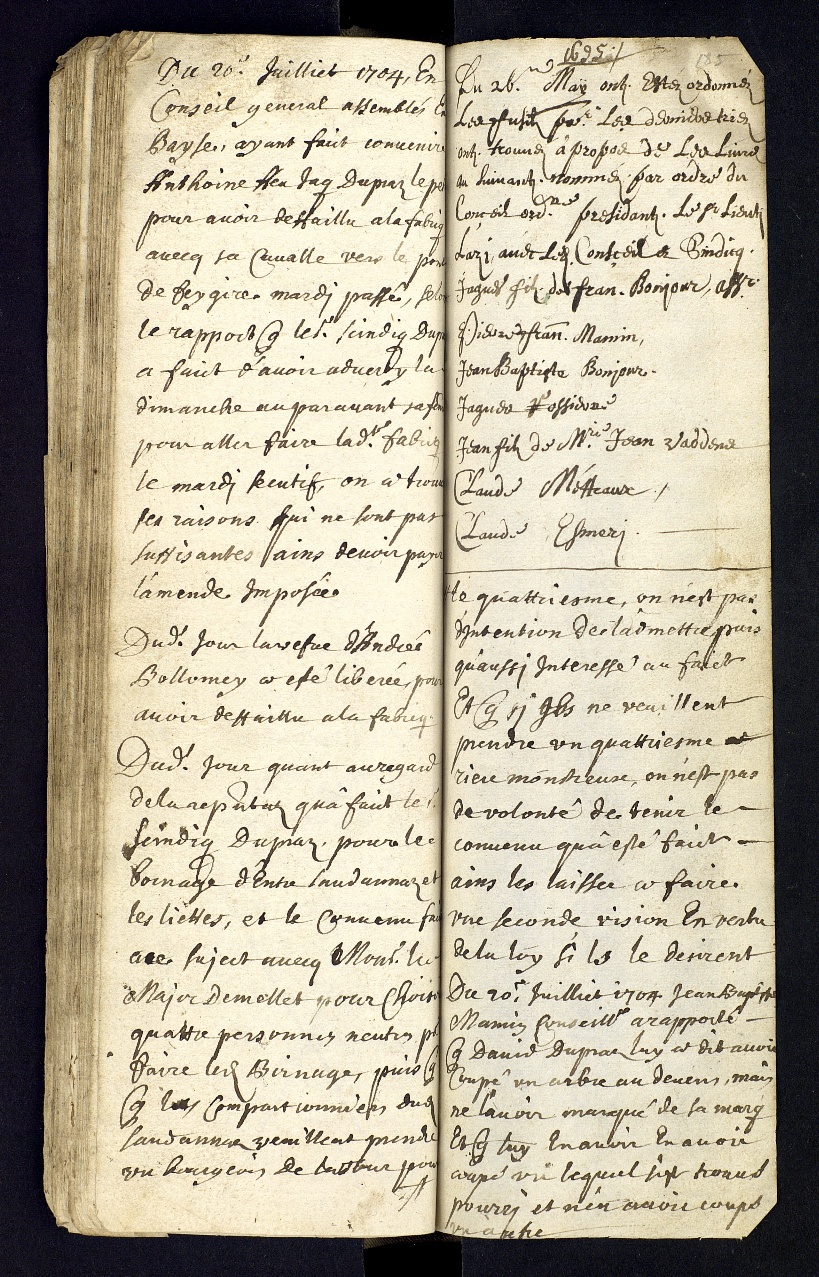 Du 20.e Juilliet 1704, En
Conseil general assemblés En
Bayse, ayant faict convenir
Anthoine ffeu Jaq Dupraz le
pour avoir deffaillu a la fabriq
avecq sa Cavalle vers le pon
de feygire mardj passé, selon
le rapport q le Sr. scindiq Dupra
a faict d'avoir adverty la
dimanche au paravant sa
pour aller faire lad.te fabriq
le mardj secutif, on a trouv
ses raisons qui ne sont pas
suffisantes ains devoir payer
l'amende Imposée
Dud. Jour la vefve d'André
Bollomey a esté liberée, pour
avoir deffaillu a la fabriq
Dud. Jour quant au regard
de la qu'a faict le Sr.
scindiq Dupraz, pour le
bornage d'Entre saudannaz et
les liettes, et le Convenu fai
a ce suject avecq Mons. le
Major Demellet pour Choisir
quattre personnes neutres p
faire led Birnage, puis q
q les Compartionniers dud
saudannaz veuillent prendre
un bourgeois de pour
1695
Du 26. May ont Estez ordonnéz
Les fusil pr. Les derniere
ont trouvéz à propos de Les Livre
au suivants nommez par ordre du
Conceil ord.re presidant. Le Sr Lieut
avec Les Conseil & Sindicq.
Jaques fils de fran. Bonjour, assr.
Pierre fran. Mamin,
Jean Baptiste Bonjour.
Jaques
Jean fils de M.re Jean
Claude
Claude Esmerj.
le quattriesme, on n'est pas
d'Intention de l'admettre puis
qu'aussj Interessé au faict
Et q sj Jls ne veuillent
prendre un quattriesme
riere monstreuse, on n'est pas
de volonté de tenir le
convenu qu'a esté faict
ains les laisser a faire
une seconde vision En vertu
de la loy Si ls le desirent
Du 20.e Juilliet 1704 Jean Baptiste
Mamin Conseillr a rapporté
q David Dupraz luy a dit avoir
Coupé un arbre au devens, mais
ne l'avoir marqué de sa marq
Et q luy En avoir En avoir
coupé un lequel trouvé
pourrj et n'en avoir coupé
un autre